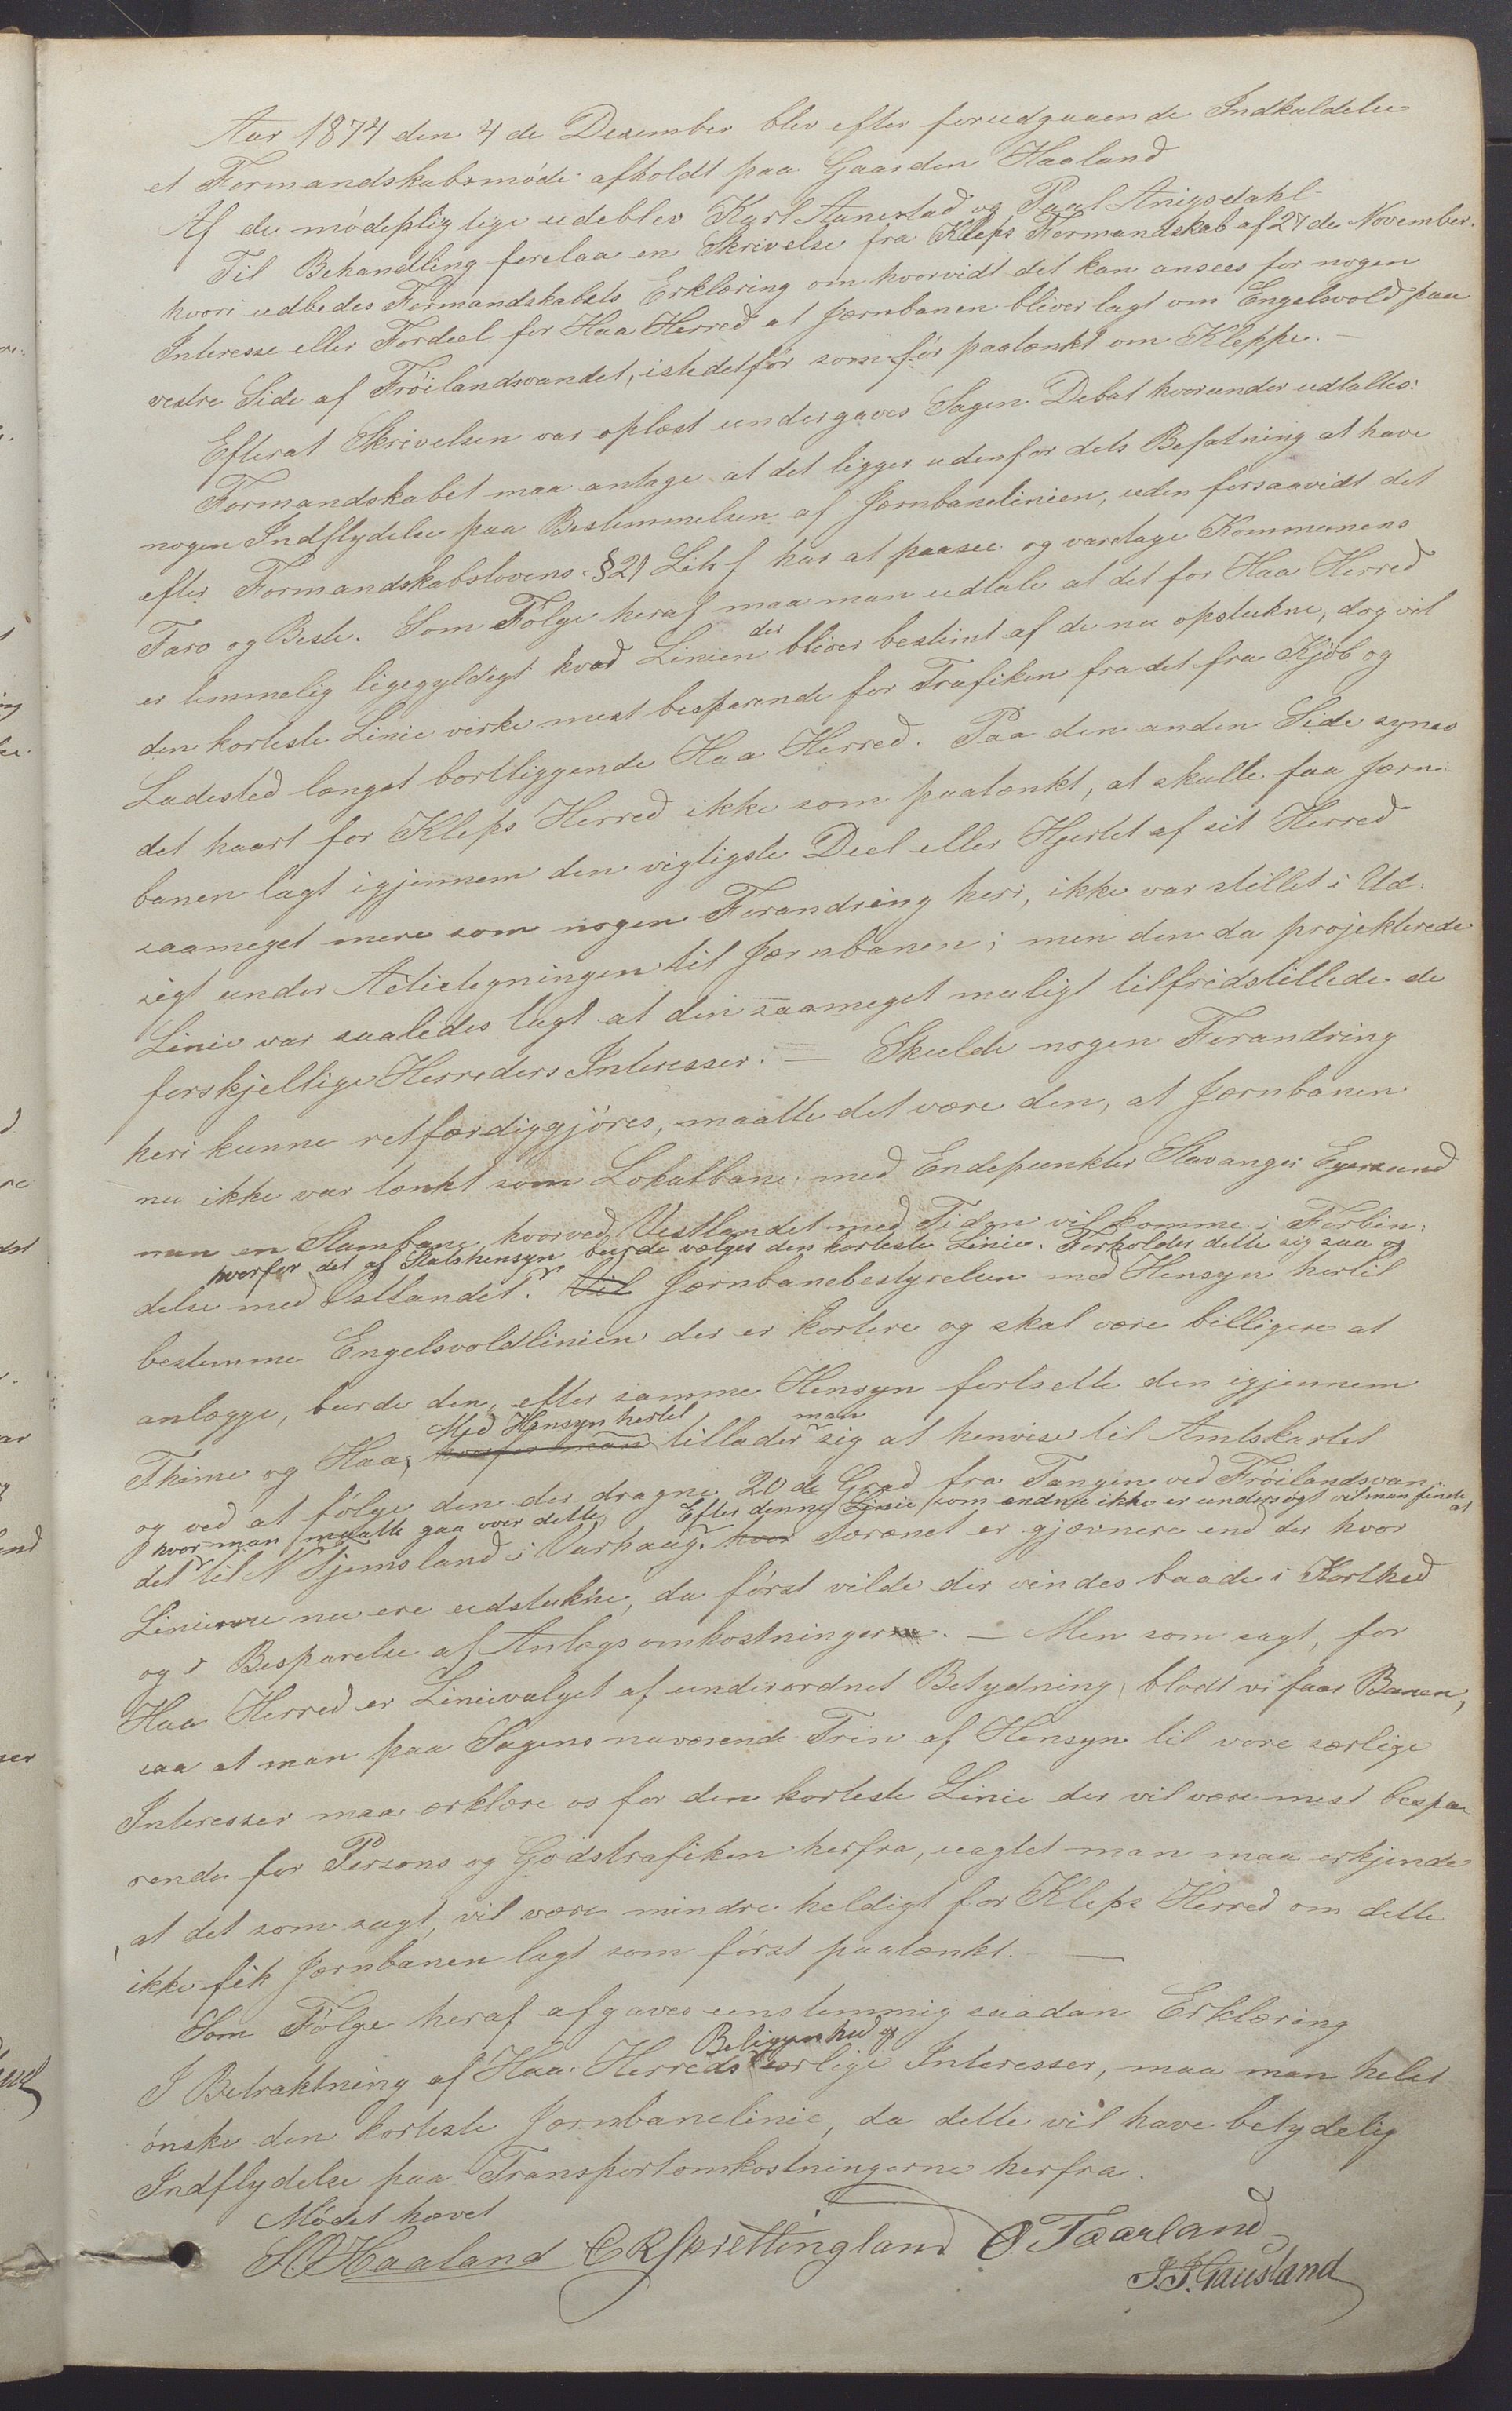 Aar 1874 den 4de Desember blev efter forudgaaende Indkaldelse
et Formandskabsmöde afholdt paa Gaarden Haaland
Af de mödepligtige udeblev Karl Aanestad og Paal Anigsdahl
Til Behandling forelaa en Skrivelse fra Kleps Formandskab af 27de November.
hvori udbedes Formandskabets Erklæring om hvorvidt det kan ansees for nogen
Interesse eller Fordeel for Haa Herred at Jærnbanen bliver lagt om Engelsvold paa
vestre Side af Fröilandsvandet, istedetfor som för paatænkt om Kleppe. –
Efterat Skrivelsen var oplæst undergaves Sagen Debat hvorunder udtaltes:
Formandskabet maa antage at det ligger udenfor dets Befatning at have
nogen Indflydelse paa Bestemmelsen af Jærnbanelinien, uden forsaavidt det
efter Formandskabslovens §21 Litr f har at paasee og varetage Kommunens
Tarv og Beste. Som Fölge heraf maa man udtale at det for Haa Herred
er temmelig ligegyldigt hvad Linien der bliver bestemt af de nu opstukne, dog vil
den korteste Linie virke mest besparende for Trafiken fra det fra Kjöb og
Ladested længst bortliggende Haa Herred. Paa den anden Side synes
det haart for Kleps Herred ikke som paatænkt, at skulle faa Jærn-
banen lagt igjennem den vigtigste Deel eller Hjertet af sit Herred
saameget mere som nogen Forandring heri, ikke var stillet i Ud-
sigt under Actietegningen til Jærnbanen; men den da projekterede
Linie var saaledes lagt at den saameget muligt tilfredstillede de
forskjellige Herreders Interesser. – Skulde nogen Forandring
heri kunne retfærdiggjöres, maatte det være den, at Jærnbanen
nu ikke var tænkt som Lokalbane med Endepunkter Stavanger Egersund
men en Stambane hvorved Vestlandet med Tiden vil komme i Forbin-
hvorfor det af Statshensyn burde vælges den korteste Linie. Forholder dette sig saa og
delse med Østlandet. Vil Jærnbanebestyrelsen med Hensyn hertil
bestemme Engelsvoldlinien der er kortere og skal være billigere at
anlægge, burde den, efter samme Hensyn fortsætte den igjennem
Med Hensyn hertil man
Thime og Haa, hvorfor man tillader sig at henvise til Amtskartet
og ved at fölge den der dragne 20de Grad fra Tangen ved Fröilandsvan-
hvor man maatte gaa over dette, Efter denne Linie, som endnu ikke er undersögt vil man finde at
det til N Tjemsland i Varhaug. hvor Terænet er gjævnere end der hvor
Linierne nu ere udstukne, da först vilde der vindes baade i Korthed
og i Besparelse af Anlægsomkostninger. – Men som sagt, for
Haa Herred er Linievalget af underordnet Betydning, blodt vi faar Banen,
saa at man paa Sagens nuværende Trin af Hensyn til vore særlige
Interesser maa erklære os for den korteste Linie der vil være mest bespa-
rende for Persons og Godstrafiken herfra, uagtet man maa erkjende
, at det som sagt, vil være mindre heldigt for Kleps Herred om dette
ikke fik Jærnbanen lagt som först paatænkt. –
Som Fölge heraf afgaves eenstemmig saadan Erklæring
Beliggenhed og
I Betraktning af Haa Herreds særlige Interesser, maa man helst
önske den korteste Jærnbanelinie, da dette vil have betydelig
Indflydelse paa Transportomkostningerne herfra.
Mödet hævet
H. O Haaland E R Sprettingland O. Taarland
J. J. Gausland